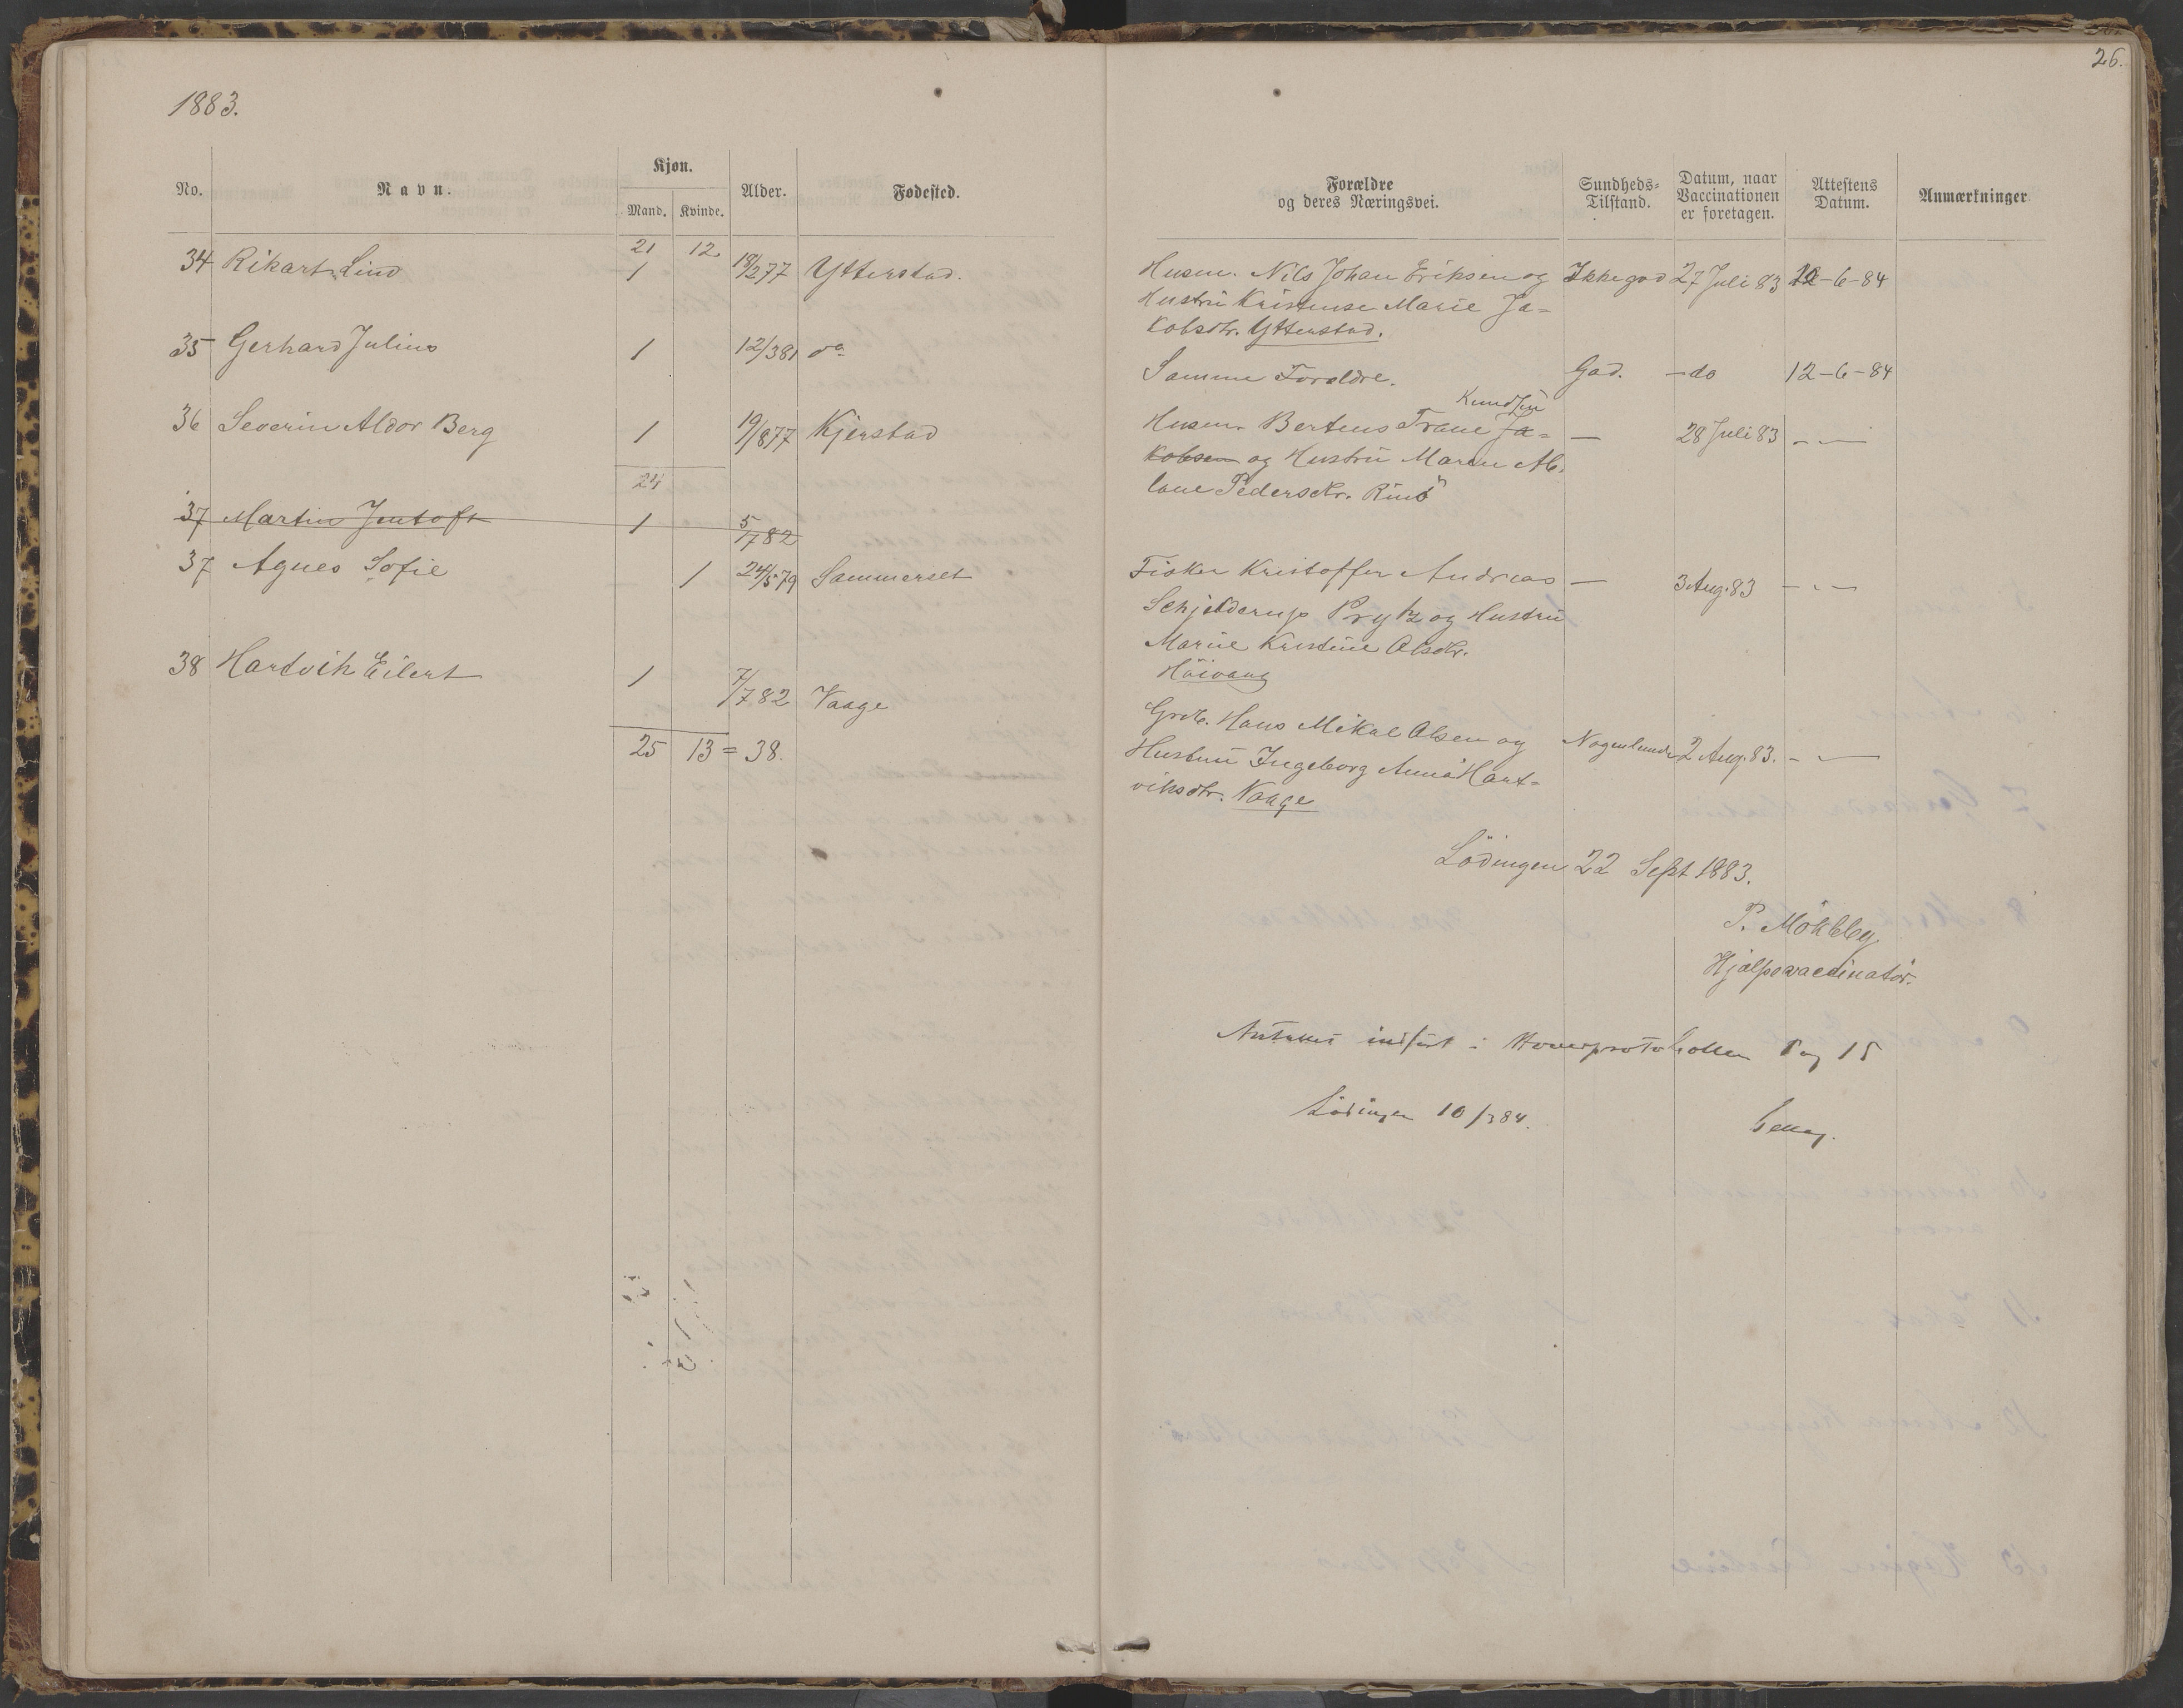 26.
1883.
No. Navn. Kjøn. Mand. Kvinde. Alder. Fødested.
Forældre og deres Næringsvei. Sundheds-Tilstand. Datum, naar Vaccinationen er foretagen. Attestens Datum. Anmærkninger
21 12
34 Rikart Lind 1 18/2 77 Ytterstad.
Husm. Nils Johan Eriksen og Ikke god 27 Juli 83 12-6-84
Hustru Kristense Marie Ja-
kobsdtr. Ytterstad.
35 Gerhard Julius 1 12/3 81 do
Samme Forældre. God. -do 12-6-84
36 Severin Aldor Berg 1 19/8 77 Kjerstad
Knudsen
Husm. Berteus Trane Ja- — 28 Juli 83 - —
kobsen og Hustru Maren Ab-
lone Pedersdtr. Rinö
24
37 Martin Jentoft 1 5/7 82
37 Agnes Sofie 1 24/5 79 Sommerset
Fisker Kristoffer Andreas — 3 Aug. 83 - - —
Schjelderup Prytz og Hustru
Marie Kristine Olsdtr.
Höivang
38 Hartvik Eilert 1 7/7 82 Vaage
25 13 = 38.
Grdb. Hans Mikal Olsen og Nogenlunde 2 Aug. 83. - —
Hustru Ingeborg Anna Hart-
viksdtr. Vaage
Lödingen 22 Sept 1883.
P. Mökleby
Hjælpevaccinatör.
indført i Hovedprotokollen Pag 15
Lödingen 10/3 84.